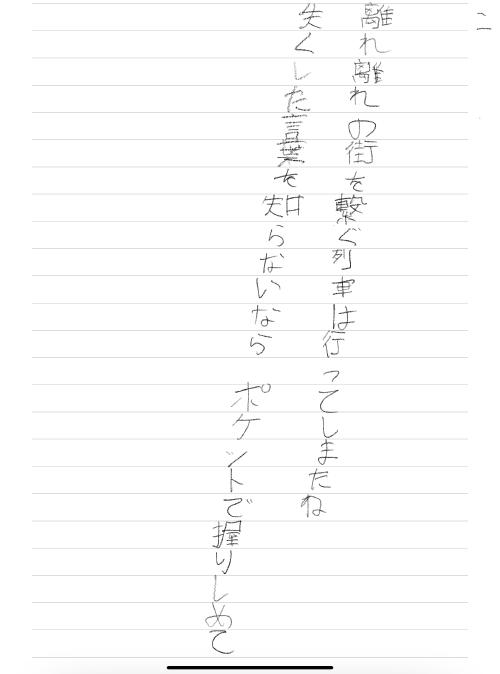 離れ離れの街を繋ぐ列車は行ってしまたね
失くした言葉を知らないなら ポケットで握りしめて